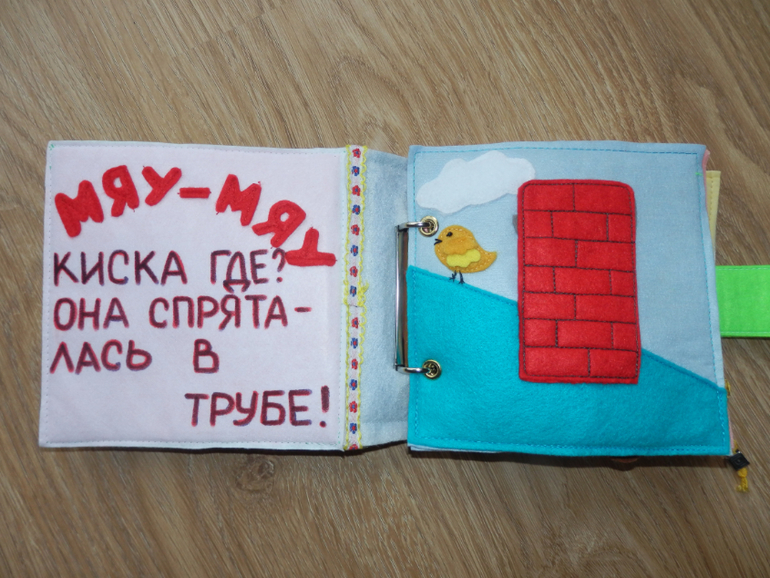 МЯУ-МЯУ
КИСКА ГДЕ?
ОНА СПРЯТА-
ЛАСЬ В
ТРУБЕ!